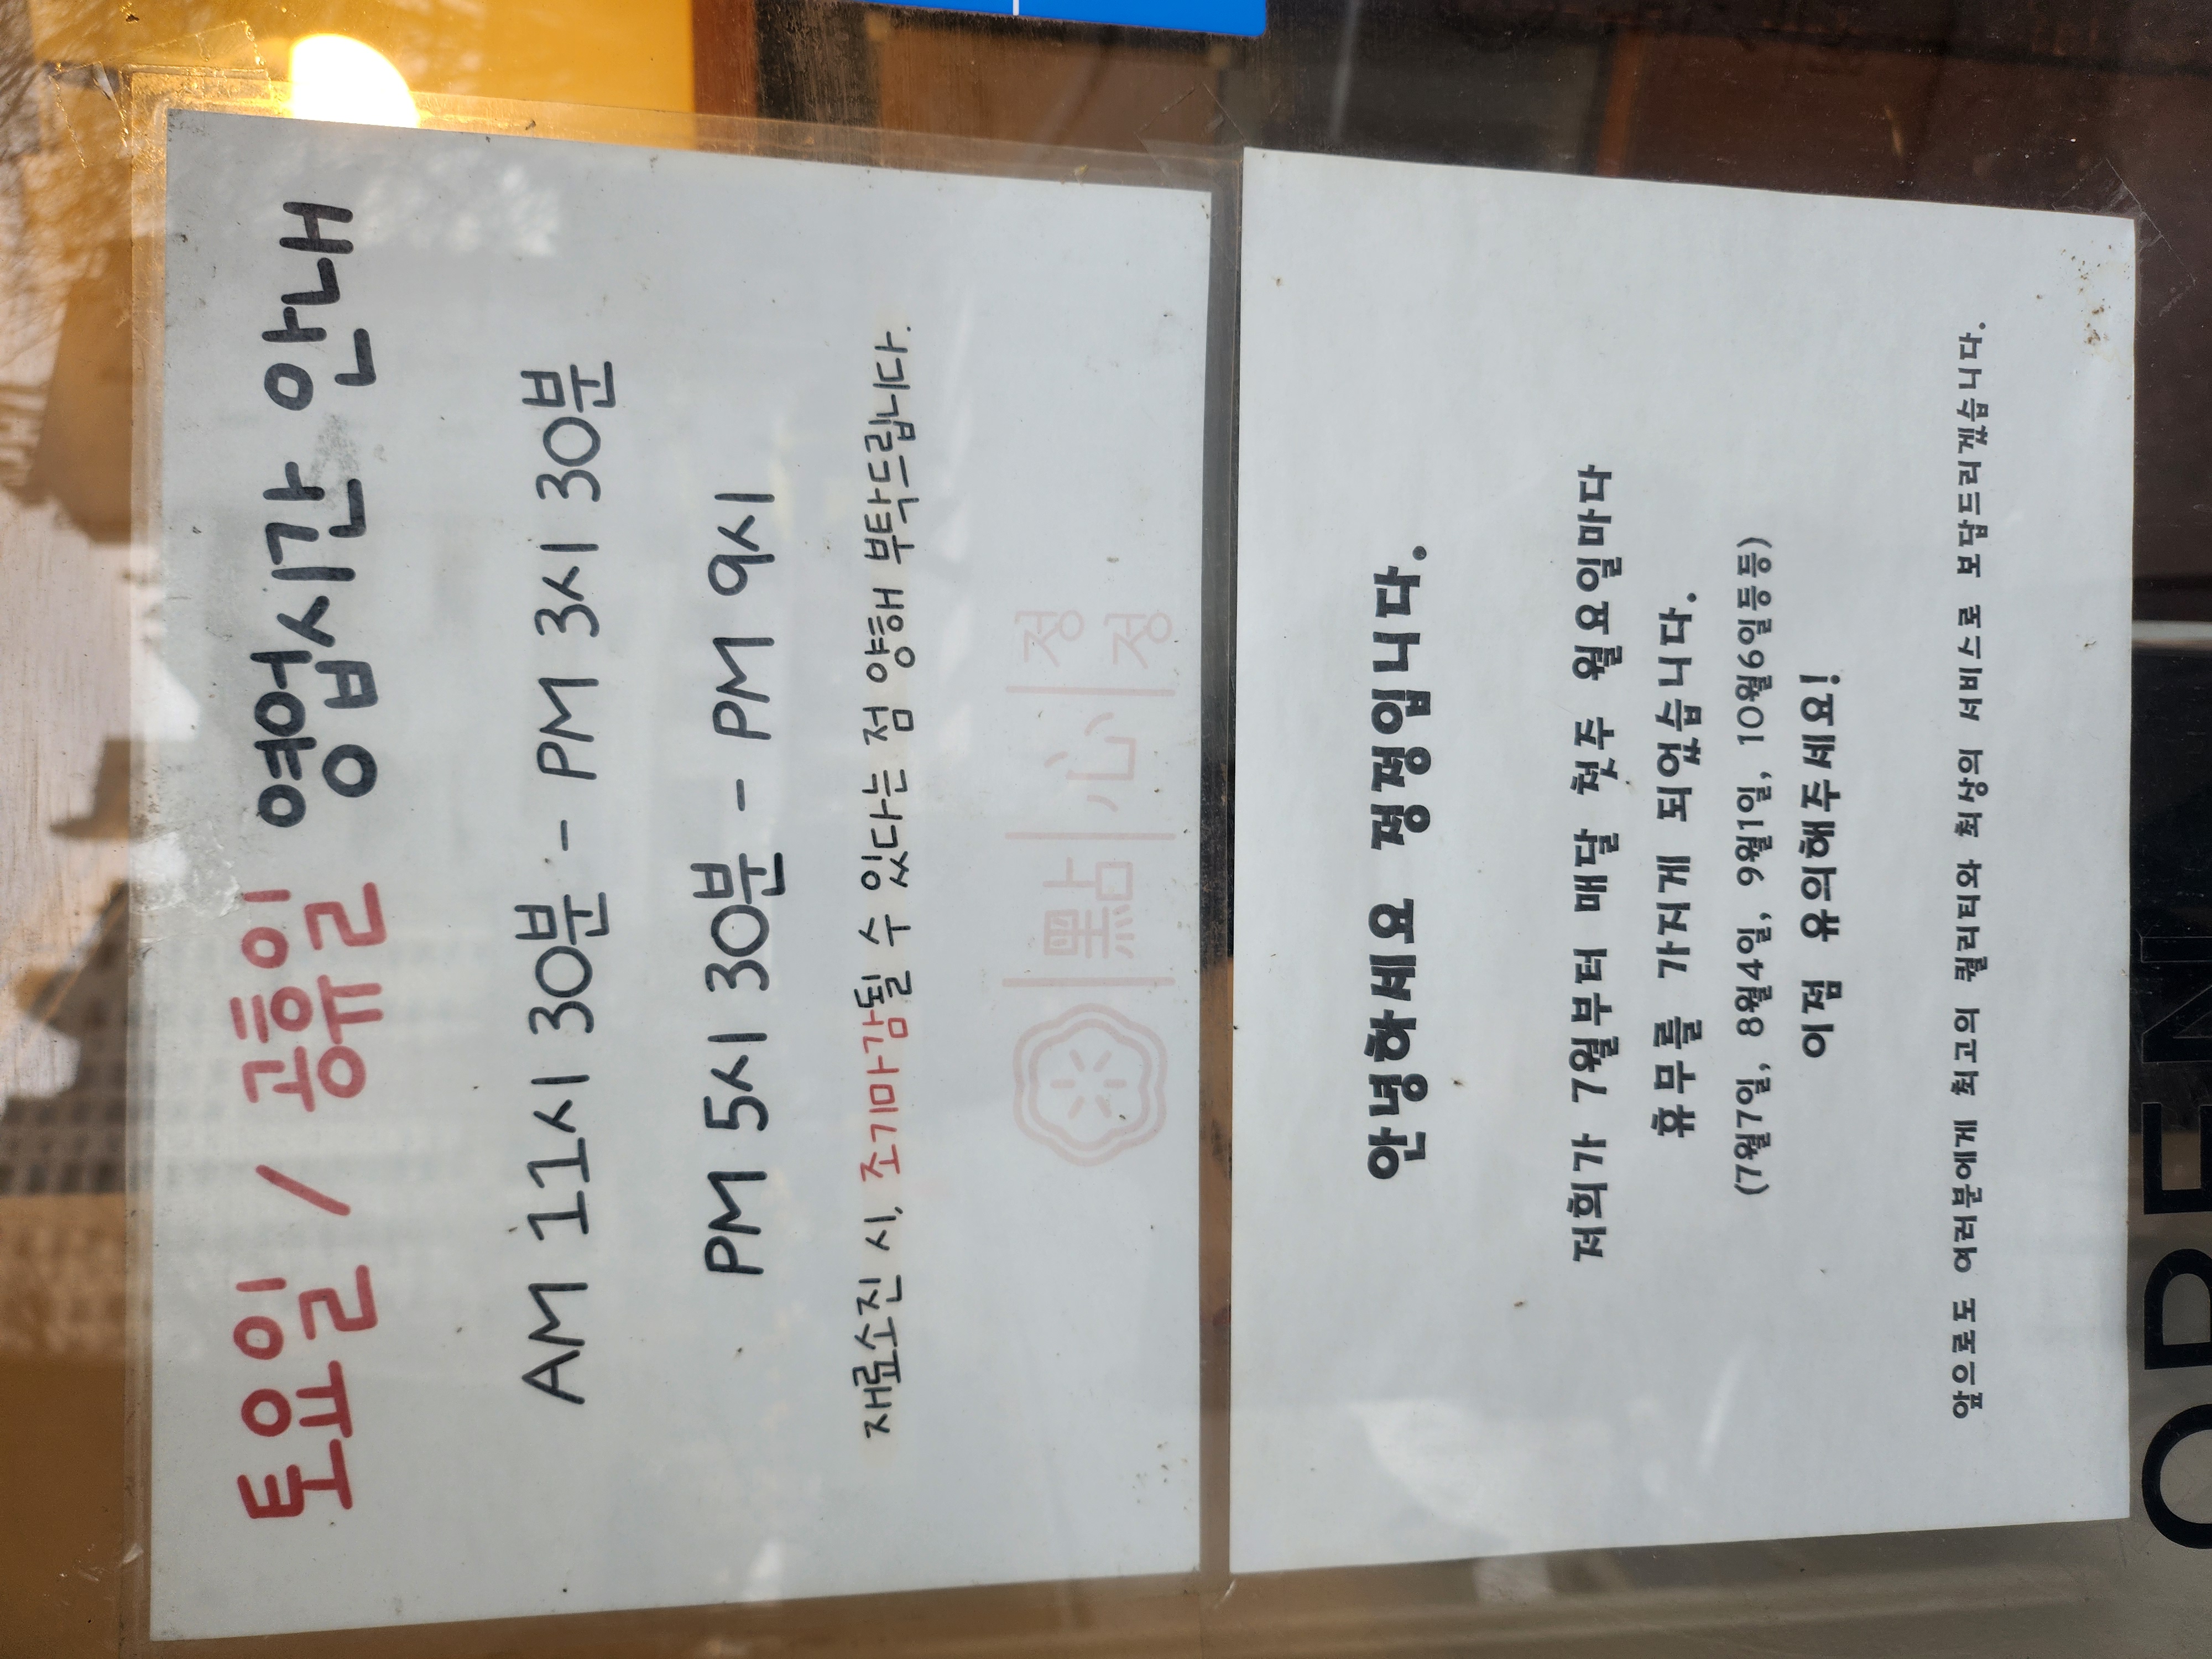 토요일 / 공휴일 영업시간 안내
AM 11시 30분 - PM 3시 30분
PM 5시 30분 - PM 9시
재료소진 시, 조기마감될 수 있다는 점 양해 부탁드립니다.
點 心 정
정
안녕하세요 정정입니다.
저희가 7월부터 매달 첫주 월요일마다
휴무를 가지게 되었습니다.
(7월7일, 8월4일, 9월1일, 10월6일등등)
이점 유의해주세요!
앞으로도 여러분에게 최고의 퀄리티와 최상의 서비스로 보답드리겠습니다.
OPEN